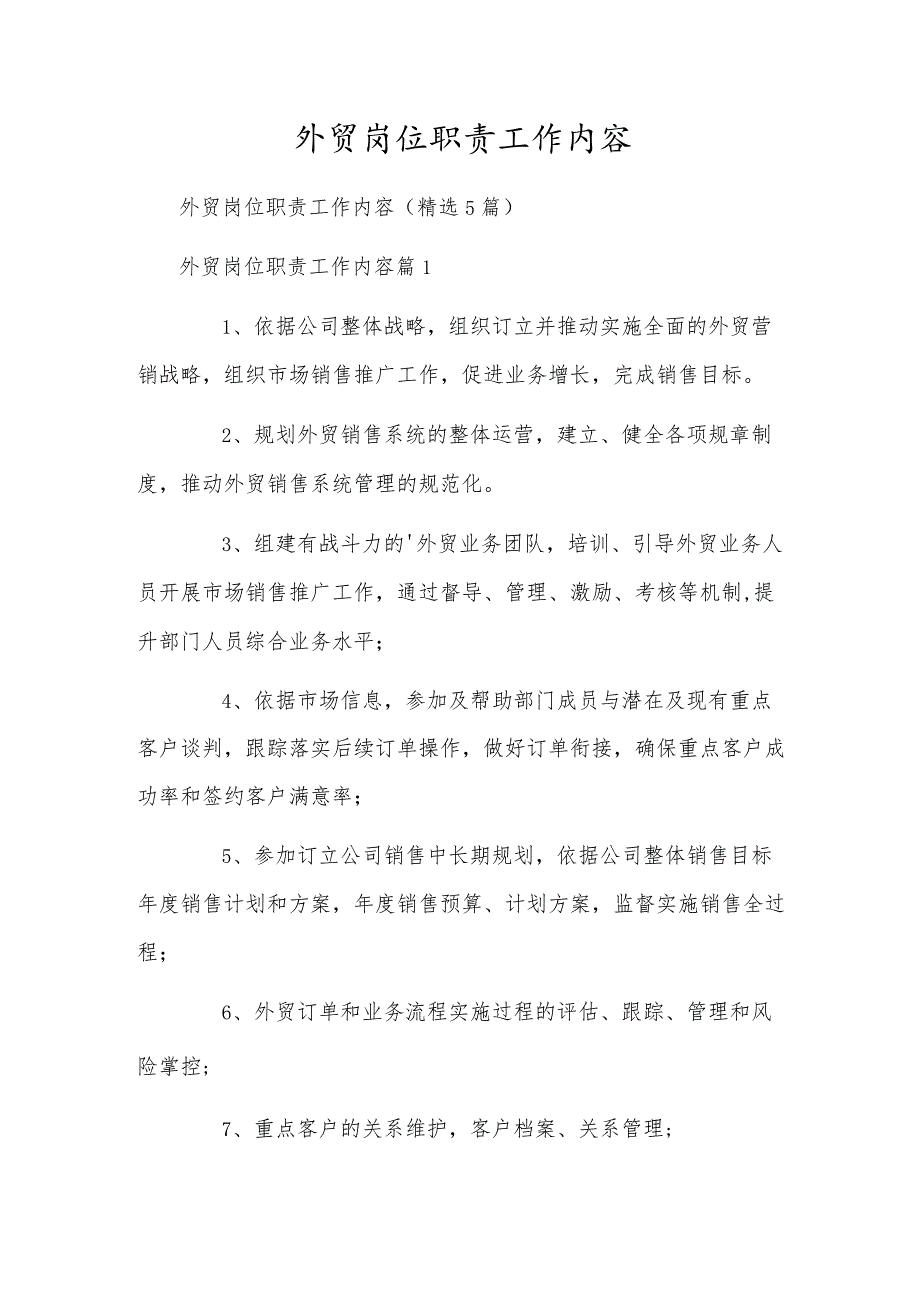 外贸岗位职责工作内容
外贸岗位职责工作内容（精选5篇）
外贸岗位职责工作内容篇1
1、依据公司整体战略，组织订立并推动实施全面的外贸营
销战略，组织市场销售推广工作，促进业务增长，完成销售目标。
2、规划外贸销售系统的整体运营，建立、健全各项规章制
度，推动外贸销售系统管理的规范化。
3、组建有战斗力的'外贸业务团队，培训、引导外贸业务人
员开展市场销售推广工作，通过督导、管理、激励、考核等机制,提
升部门人员综合业务水平；
4、依据市场信息，参加及帮助部门成员与潜在及现有重点
客户谈判，跟踪落实后续订单操作，做好订单衔接，确保重点客户成
功率和签约客户满意率；
5、参加订立公司销售中长期规划，依据公司整体销售目标
年度销售计划和方案，年度销售预算、计划方案，监督实施销售全过
程；
6、外贸订单和业务流程实施过程的评估、跟踪、管理和风
险掌控;
7、重点客户的关系维护，客户档案、关系管理;